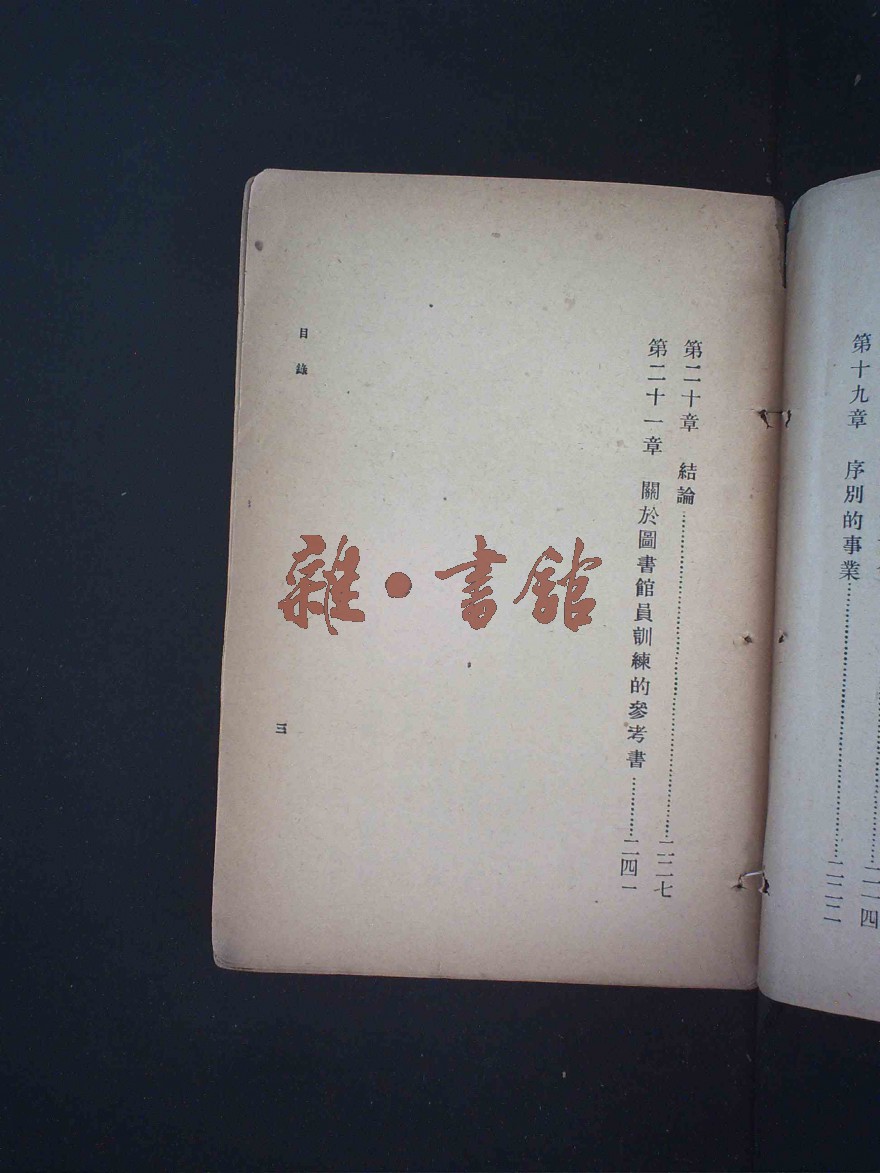 第十九章　序別的事業……………二二二
第二十章　結論……………二二七
第二十一章　關於圖書館員訓練的參考書……二四一
目錄
三
雜·書館